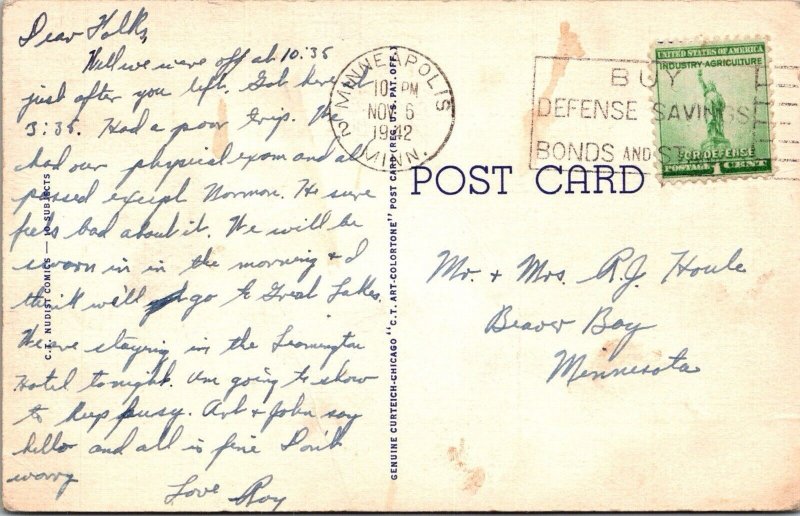 Dear Folks,
Well we were off at 10:35
just after you left. Got here at
3:35. Had a poor trip. We
had our physical exam and all
passed except Norman. He sure
feels bad about it. We will be
sworn in in the morning + I
think we'll go to Great Lakes.
We are staying in the Leamington
Hotel tonight. Am going to show
to keep busy. Art + John say
hello and all is fine Don't
worry
Love Roy
C.T. NUDIST COMICS — 10 SUBJECTS
GENUINE CURTEICH-CHICAGO "C.T. ART-COLORTONE" POST CARD (REG. U.S. PAT. OFF.)
MINNEAPOLIS
2
10 PM
NOV 6
1942
MINN.
BUY
DEFENSE SAVINGS
BONDS AND ST
UNITED STATES OF AMERICA
INDUSTRY-AGRICULTURE
FOR DEFENSE
POSTAGE 1 CENT
POST CARD
Mr. + Mrs. R.J. Houle
Beaver Bay
Minnesota